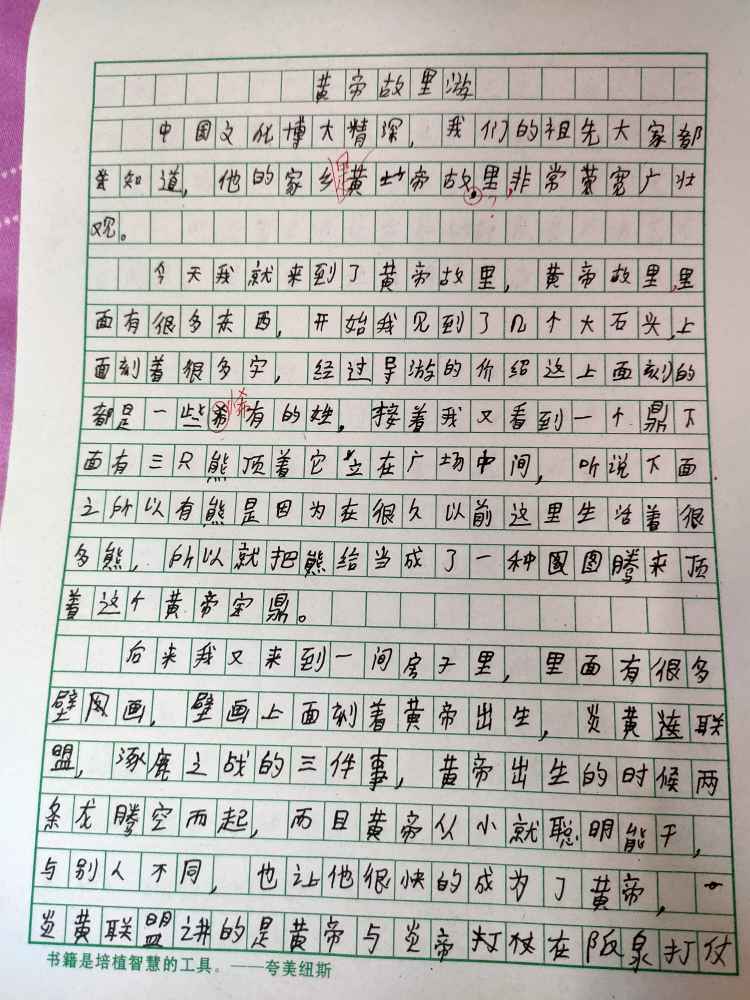 黄帝故里游
中国文化博大精深，我们的祖先大家都
知道，他的家乡是黄帝故里，非常宽广壮
观。
今天我就来到了黄帝故里，黄帝故里，里
面有很多东西，开始我见到了几个大石头，上
面刻着很多字，经过导游的价绍这上面刻的
都是一些希稀有的姓，接着我又看到一个鼎下
面有三只熊顶着它立在广场中间，听说下面
之所以有熊是因为在很久以前这里生活着很
多熊，所以就把熊给当成了一种图图腾来顶
着这个黄帝宝鼎。
后来我又来到一间房子里，里面有很多
壁画，壁画上面刻着黄帝出生，炎黄连联
盟，涿鹿之战的三件事，黄帝出生的时候两
条龙腾空而起，而且黄帝从小就聪明能干，
与别人不同，也让他很快的成为了黄帝，
炎黄联盟讲的是黄帝与炎帝打仗在阪泉打仗
书籍是培植智慧的工具。——夸美纽斯